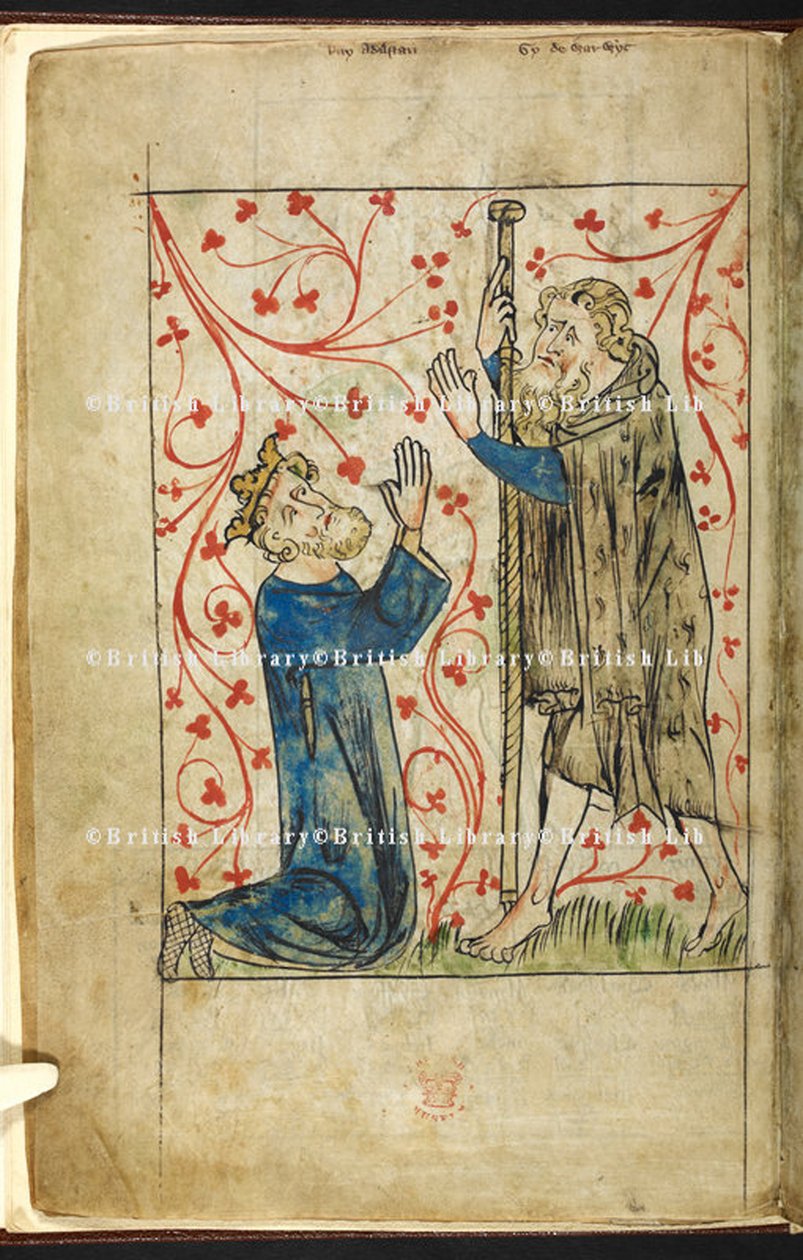 Ray Adelstan Gy de Warwyc
©British Library©British Library©British Lib
©British Library©British Library©British Lib
©British Library©British Library©British Lib